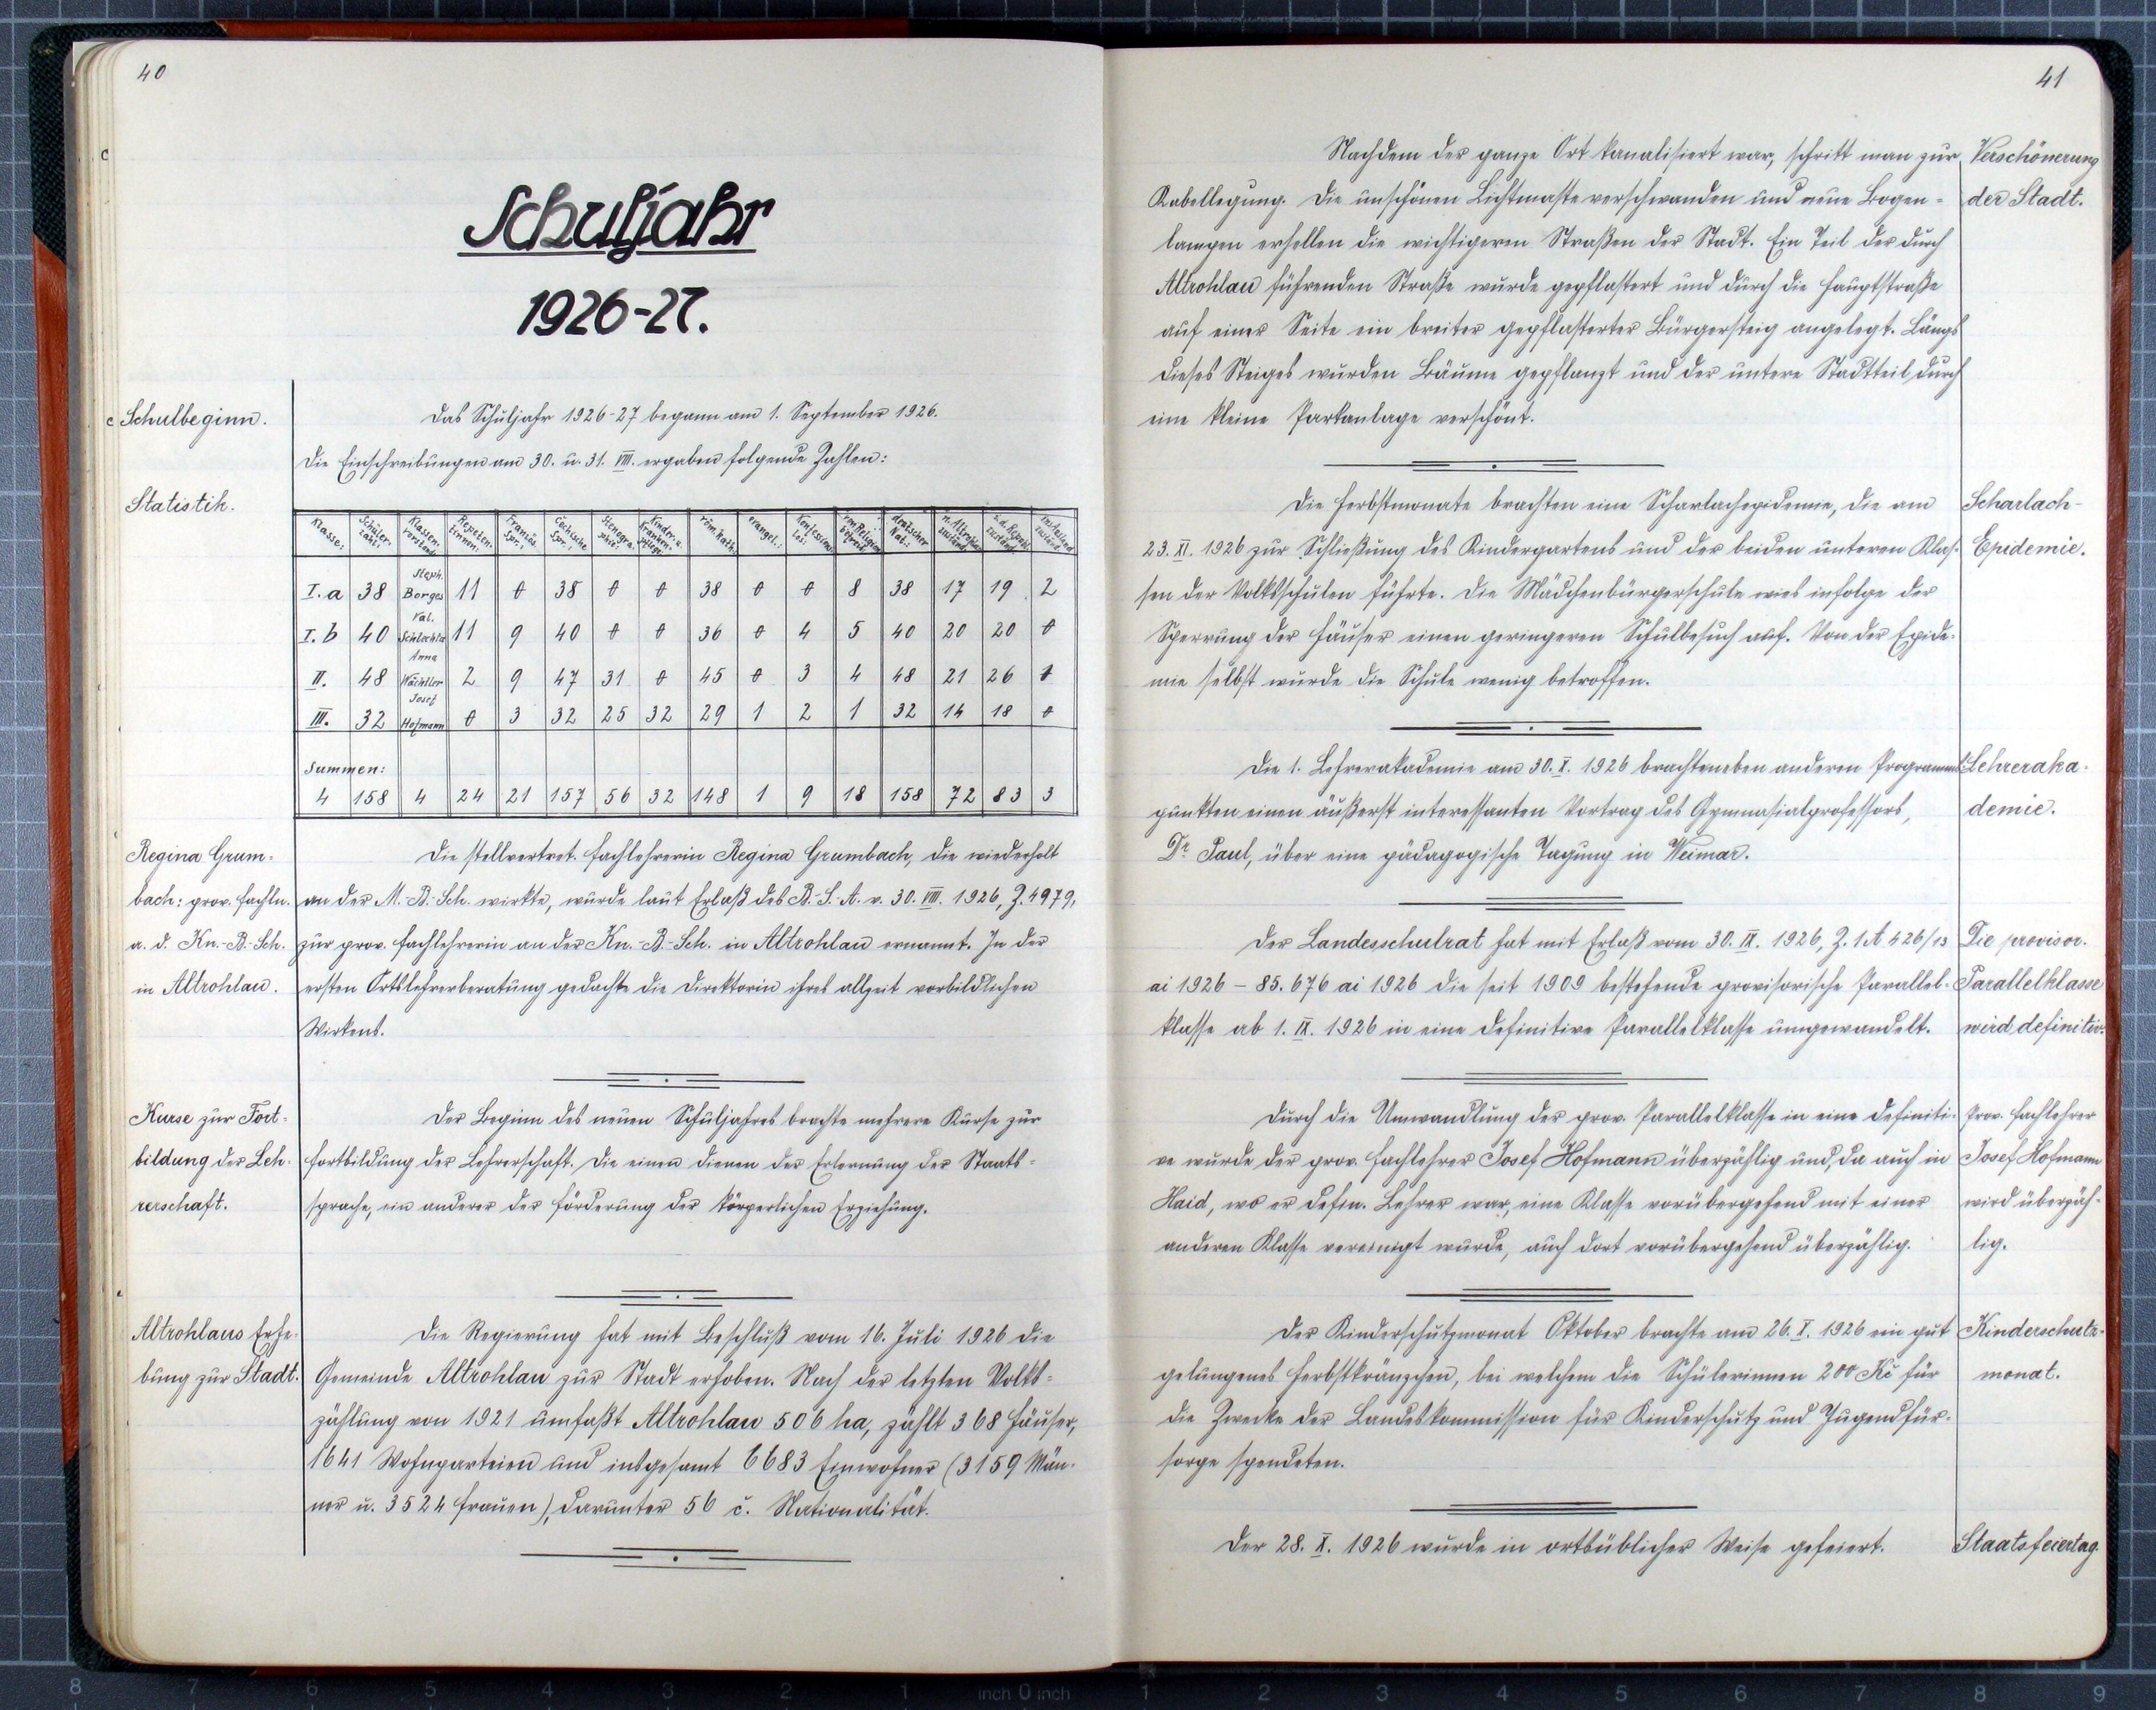 40
Schuljahr
1926-27.
Schulbeginn.
Das Schuljahr 1926-27 begann am 1. September 1926.
Die Einschreibungen am 30. u. 31. VIII. ergaben folgende Zahlen:
Statistik.
Klasse: Schülerzahl: Klassenvorstand: Repetentinnen: Französ. Spr.: Čechische Spr.: Stenographie: Kinder- u. Krankenpflege: röm. kath. evangel.: Konfessionslos: von Religion befreit deutscher Nat.: n. Altrohlau zuständ. i. d. Republ. zuständ. im Ausland zuständ.
I.a 38 Steph. Borges 11 0 38 0 0 38 0 0 8 38 17 19 2
I.b 40 Val. Schlechla 11 9 40 0 0 36 0 4 5 40 20 20 0
II. 48 Anna Wächtler 2 9 47 31 0 45 0 3 4 48 21 26 1
III. 32 Josef Hofmann 0 3 32 25 32 29 1 2 1 32 14 18 0
Summen:
4 158 4 24 21 157 56 32 148 1 9 18 158 72 83 3
Regina Grum-
bach: prov. Fachln.
a. d. Kn.-B.-Sch.
in Altrohlau.
Die stellvertret. Fachlehrerin Regina Grumbach, die wiederholt
an der M.-B.-Sch. wirkte, wurde laut Erlaß des B.-S.-A. v. 30. VIII. 1926, Z. 4979,
zur prov. Fachlehrerin an der Kn.-B.-Sch. in Altrohlau ernannt. In der
ersten Ortslehrerberatung gedachte die Direktorin ihres allzeit vorbildlichen
Wirkens.
Kurse zur Fort-
bildung der Leh-
rerschaft.
Der Beginn des neuen Schuljahres brachte mehrere Kurse zur
Fortbildung der Lehrerschaft. Die einen dienen der Erlernung der Staats-
sprache, ein anderer der Förderung der körperlichen Erziehung.
Altrohlaus Erhe-
bung zur Stadt.
Die Regierung hat mit Beschluß vom 16. Juli 1926 die
Gemeinde Altrohlau zur Stadt erhoben. Nach der letzten Volks-
zählung von 1921 umfaßt Altrohlau 506 ha, zählt 368 Häuser,
1641 Wohnparteien und insgesamt 6683 Einwohner (3159 Män-
ner u. 3524 Frauen), darunter 56 č. Nationalität.
41
Nachdem der ganze Ort kanalisiert war, schritt man zur
Kabellegung. Die unschönen Lichtmaste verschwanden und neue Bogen-
lampen erhellen die wichtigeren Straßen der Stadt. Ein Teil der durch
Altrohlau führenden Straße wurde gepflastert und durch die Hauptstraße
auf einer Seite ein breiter gepflasterter Bürgersteig angelegt. Längs
dieses Steiges wurden Bäume gepflanzt und der untere Stadtteil durch
eine kleine Parkanlage verschönt.
Verschönerung
der Stadt.
Die Herbstmonate brachten eine Scharlachepidemie, die am
23. XI. 1926 zur Schließung des Kindergartens und der beiden unteren Klas-
sen der Volksschulen führte. Die Mädchenbürgerschule wies infolge der
Sperrung der Häuser einen geringeren Schulbesuch auf. Von der Epide-
mie selbst wurde die Schule wenig betroffen.
Scharlach-
Epidemie.
Die 1. Lehrerakademie am 30. X. 1926 brachte neben anderen Programm-
punkten einen äußerst interessanten Vortrag des Gymnasialprofessors,
Dr Paul, über eine pädagogische Tagung in Weimar.
Lehreraka-
demie.
Der Landesschulrat hat mit Erlaß vom 30. IX. 1926, Z. 1 A 426/13
ai 1926 - 85.676 ai 1926 die seit 1909 bestehende provisorische Parallel-
klasse ab 1. IX. 1926 in eine definitive Parallelklasse umgewandelt.
Die provisor.
Parallelklasse
wird definitiv.
Durch die Umwandlung der prov. Parallelklasse in eine definiti-
ve wurde der prov. Fachlehrer Josef Hofmann überzählig und, da auch in
Haid, wo er defin. Lehrer war, eine Klasse vorübergehend mit einer
anderen Klasse vereinigt wurde, auch dort vorübergehend überzählig.
Prov. Fachlehrer
Josef Hofmann
wird überzäh-
lig.
Der Kinderschutzmonat Oktober brachte am 26. X. 1926 ein gut
gelungenes Herbstkränzchen, bei welchem die Schülerinnen 200 Kč für
die Zwecke der Landeskommission für Kinderschutz und Jugendfür-
sorge spendeten.
Kinderschutz-
monat.
Der 28. X. 1926 wurde in ortsüblicher Weise gefeiert.
Staatsfeiertag.
8 7 6 5 4 3 2 1 inch 0 inch 1 2 3 4 5 6 7 8 9